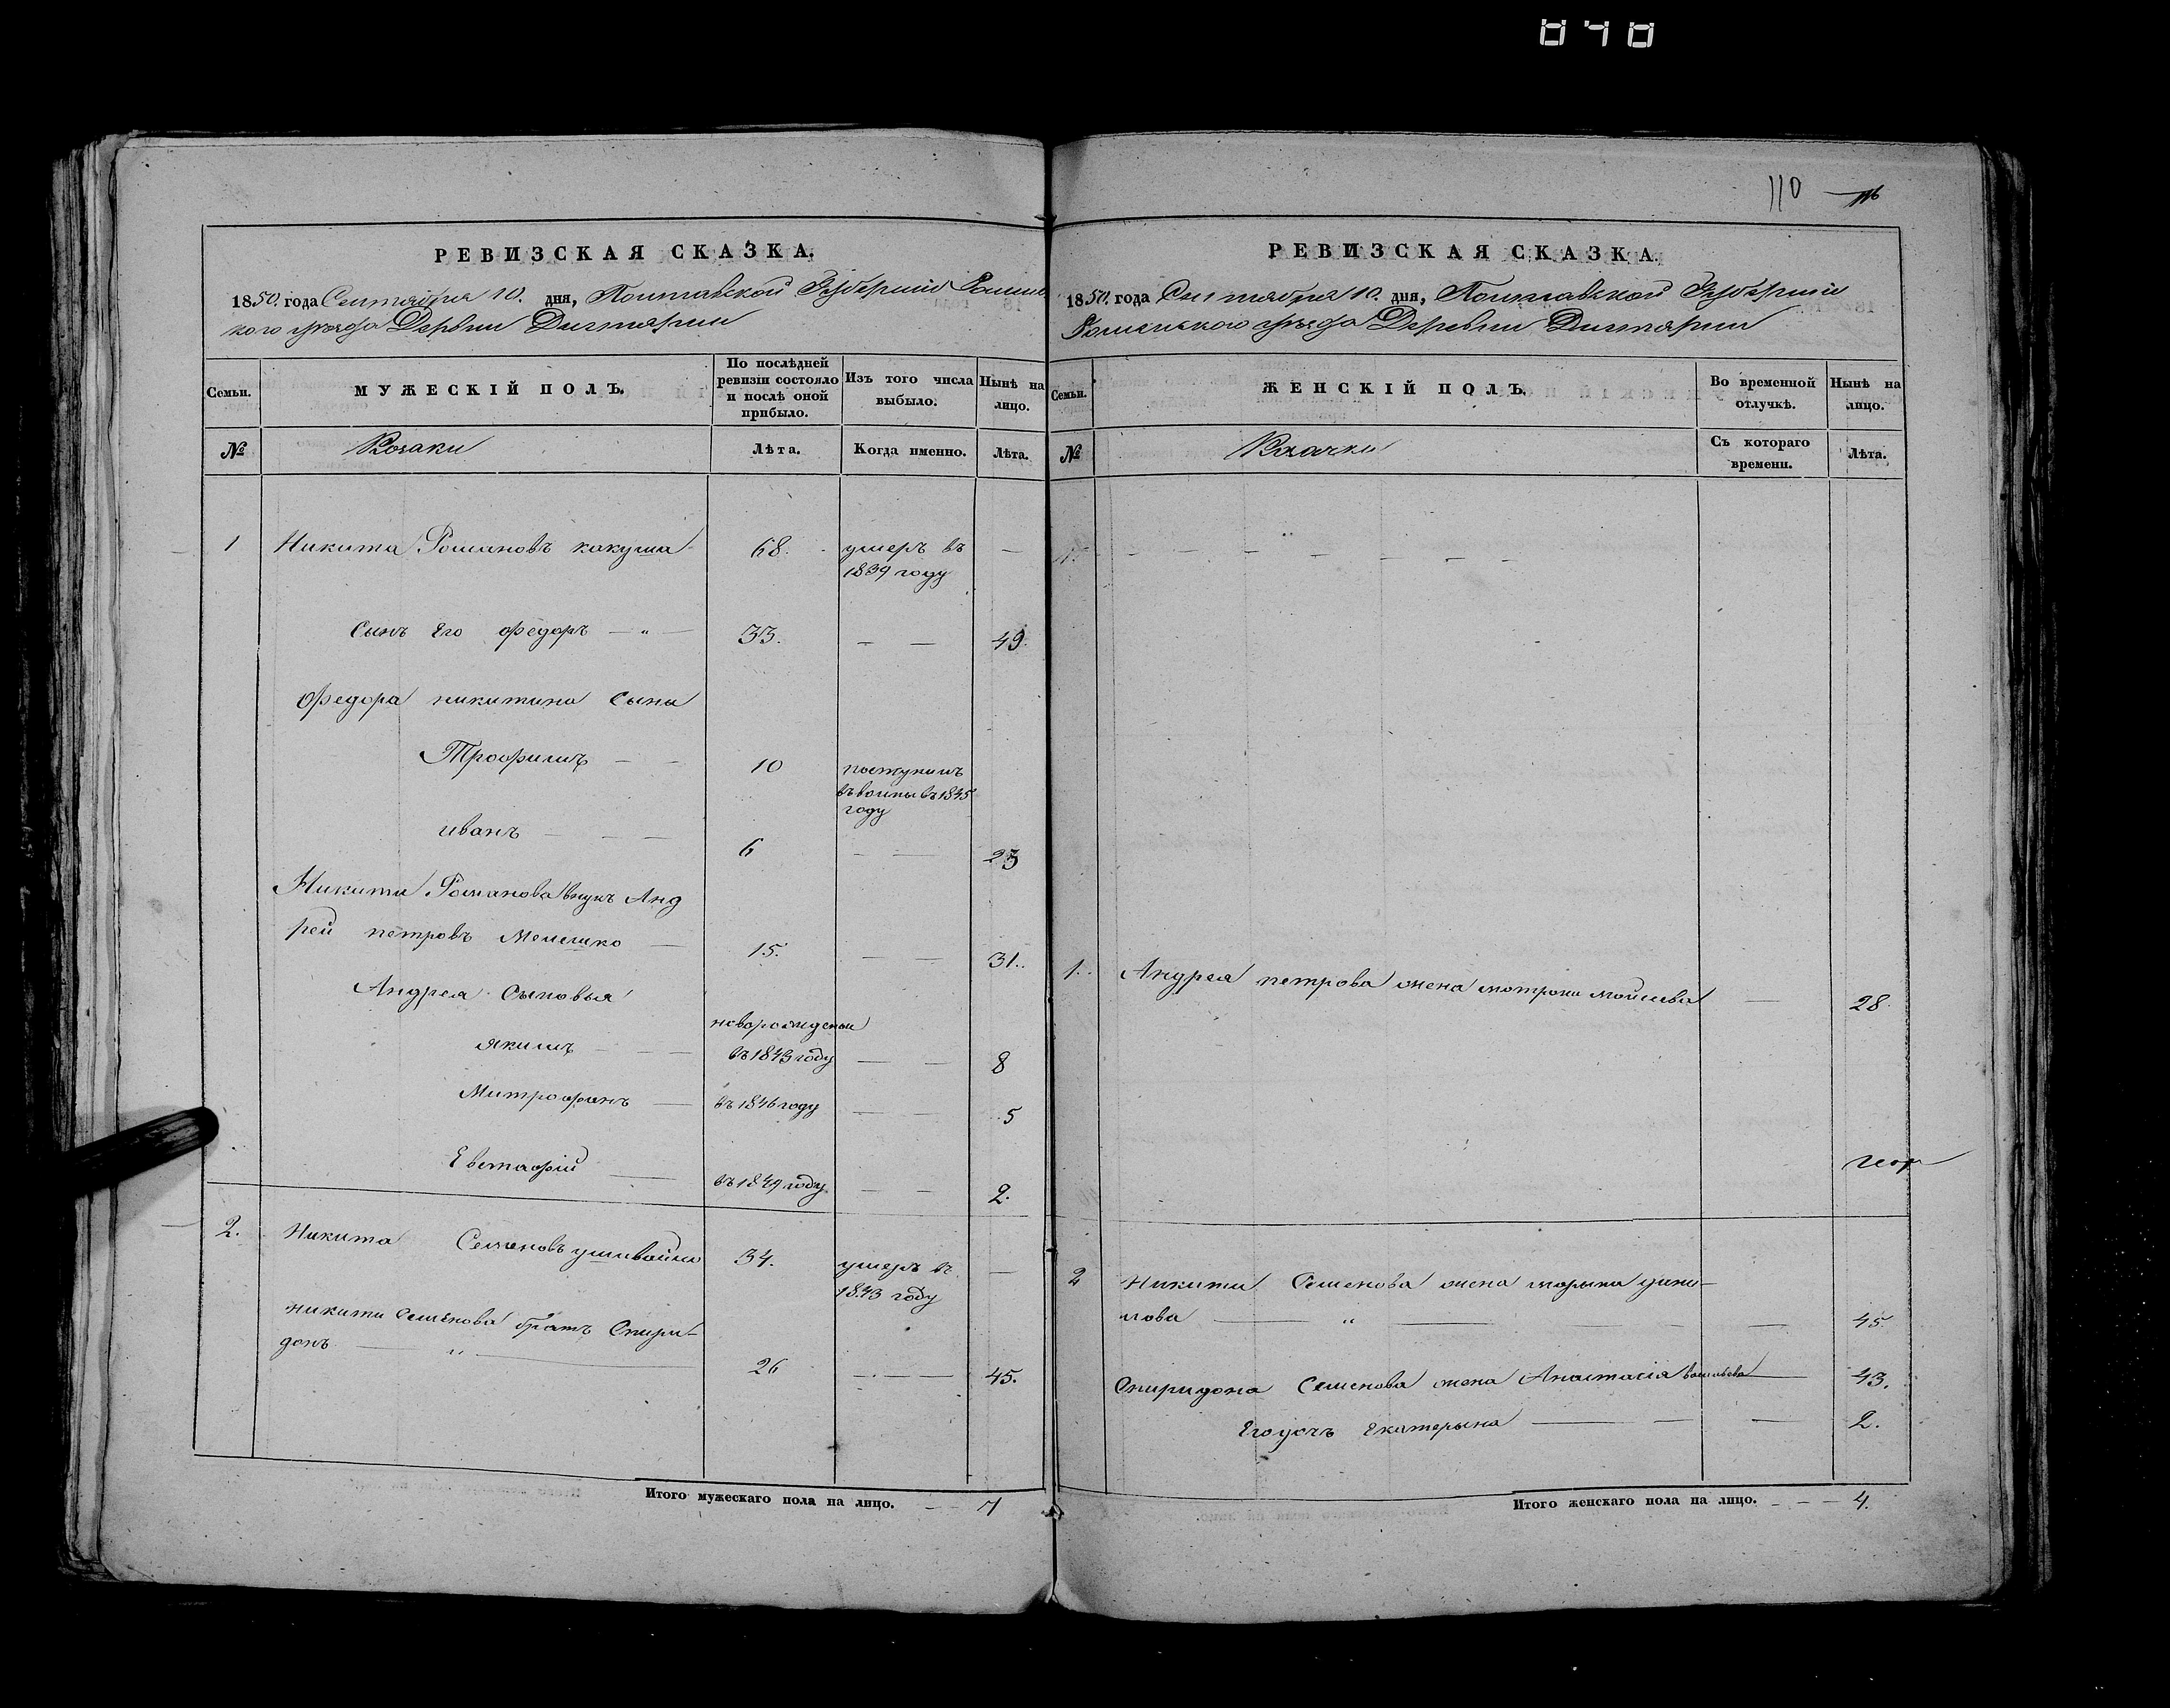 848
110
РЕВИЗСКАЯ СКАЗКА.
1850. года Сентября 10. дня, Полтавской Губернии Ромен
кого уезда Дервни Дигтярии
Семьи. МУЖЕСКІЙ ПОЛЪ. По послѣдней ревизіи состояло и послѣ оной прибыло. Изъ того числа выбыло. Нынѣ на лицо.
№ Козаки Лѣта. Когда именно. Лѣта.
1 Никита Романовъ какуша 68. умеръ въ —
1839 году
Сынъ Его Федоръ — " — 33. — — 49.
Федора никитина Сыны
Трофимъ — — 10 поступилъ
въ воины въ 1845
году
иванъ — — — 6 — — 23
Никиты Романова внукъ Анд
рей петровъ Мелешко — 15. — — 31.
Андрея Сыновья
новорожденыи
якимъ — — — въ 1843 году — — 8
Митрофанъ — въ 1846 году — — 5
Евстафій — въ 1849 году — — 2.
2. Никита Семеновъ 34. умеръ въ —
1843 году
никиты Семенова братъ Спири-
донъ — " — 26 — — 45.
Итого мужескаго пола на лицо. — — 7
РЕВИЗСКАЯ СКАЗКА.
1850. года Сентября 10. дня, Полтавской Губернии
Роменского уезда Деревни Дигтярии
Семьи. ЖЕНСКІЙ ПОЛЪ. Во временной отлучкѣ. Нынѣ на лицо.
№ Козачки Съ котораго времени. Лѣта.
1. — — — — — — —
1. Андрея петрова жена мотрона мойсеева — 28.
2 Никиты Семенова жена марына
45.
Спиридона Семенова жена Анастасія васильева — 43.
Его дочь Екатерына — — — 2.
Итого женскаго пола на лицо. — — — 4.